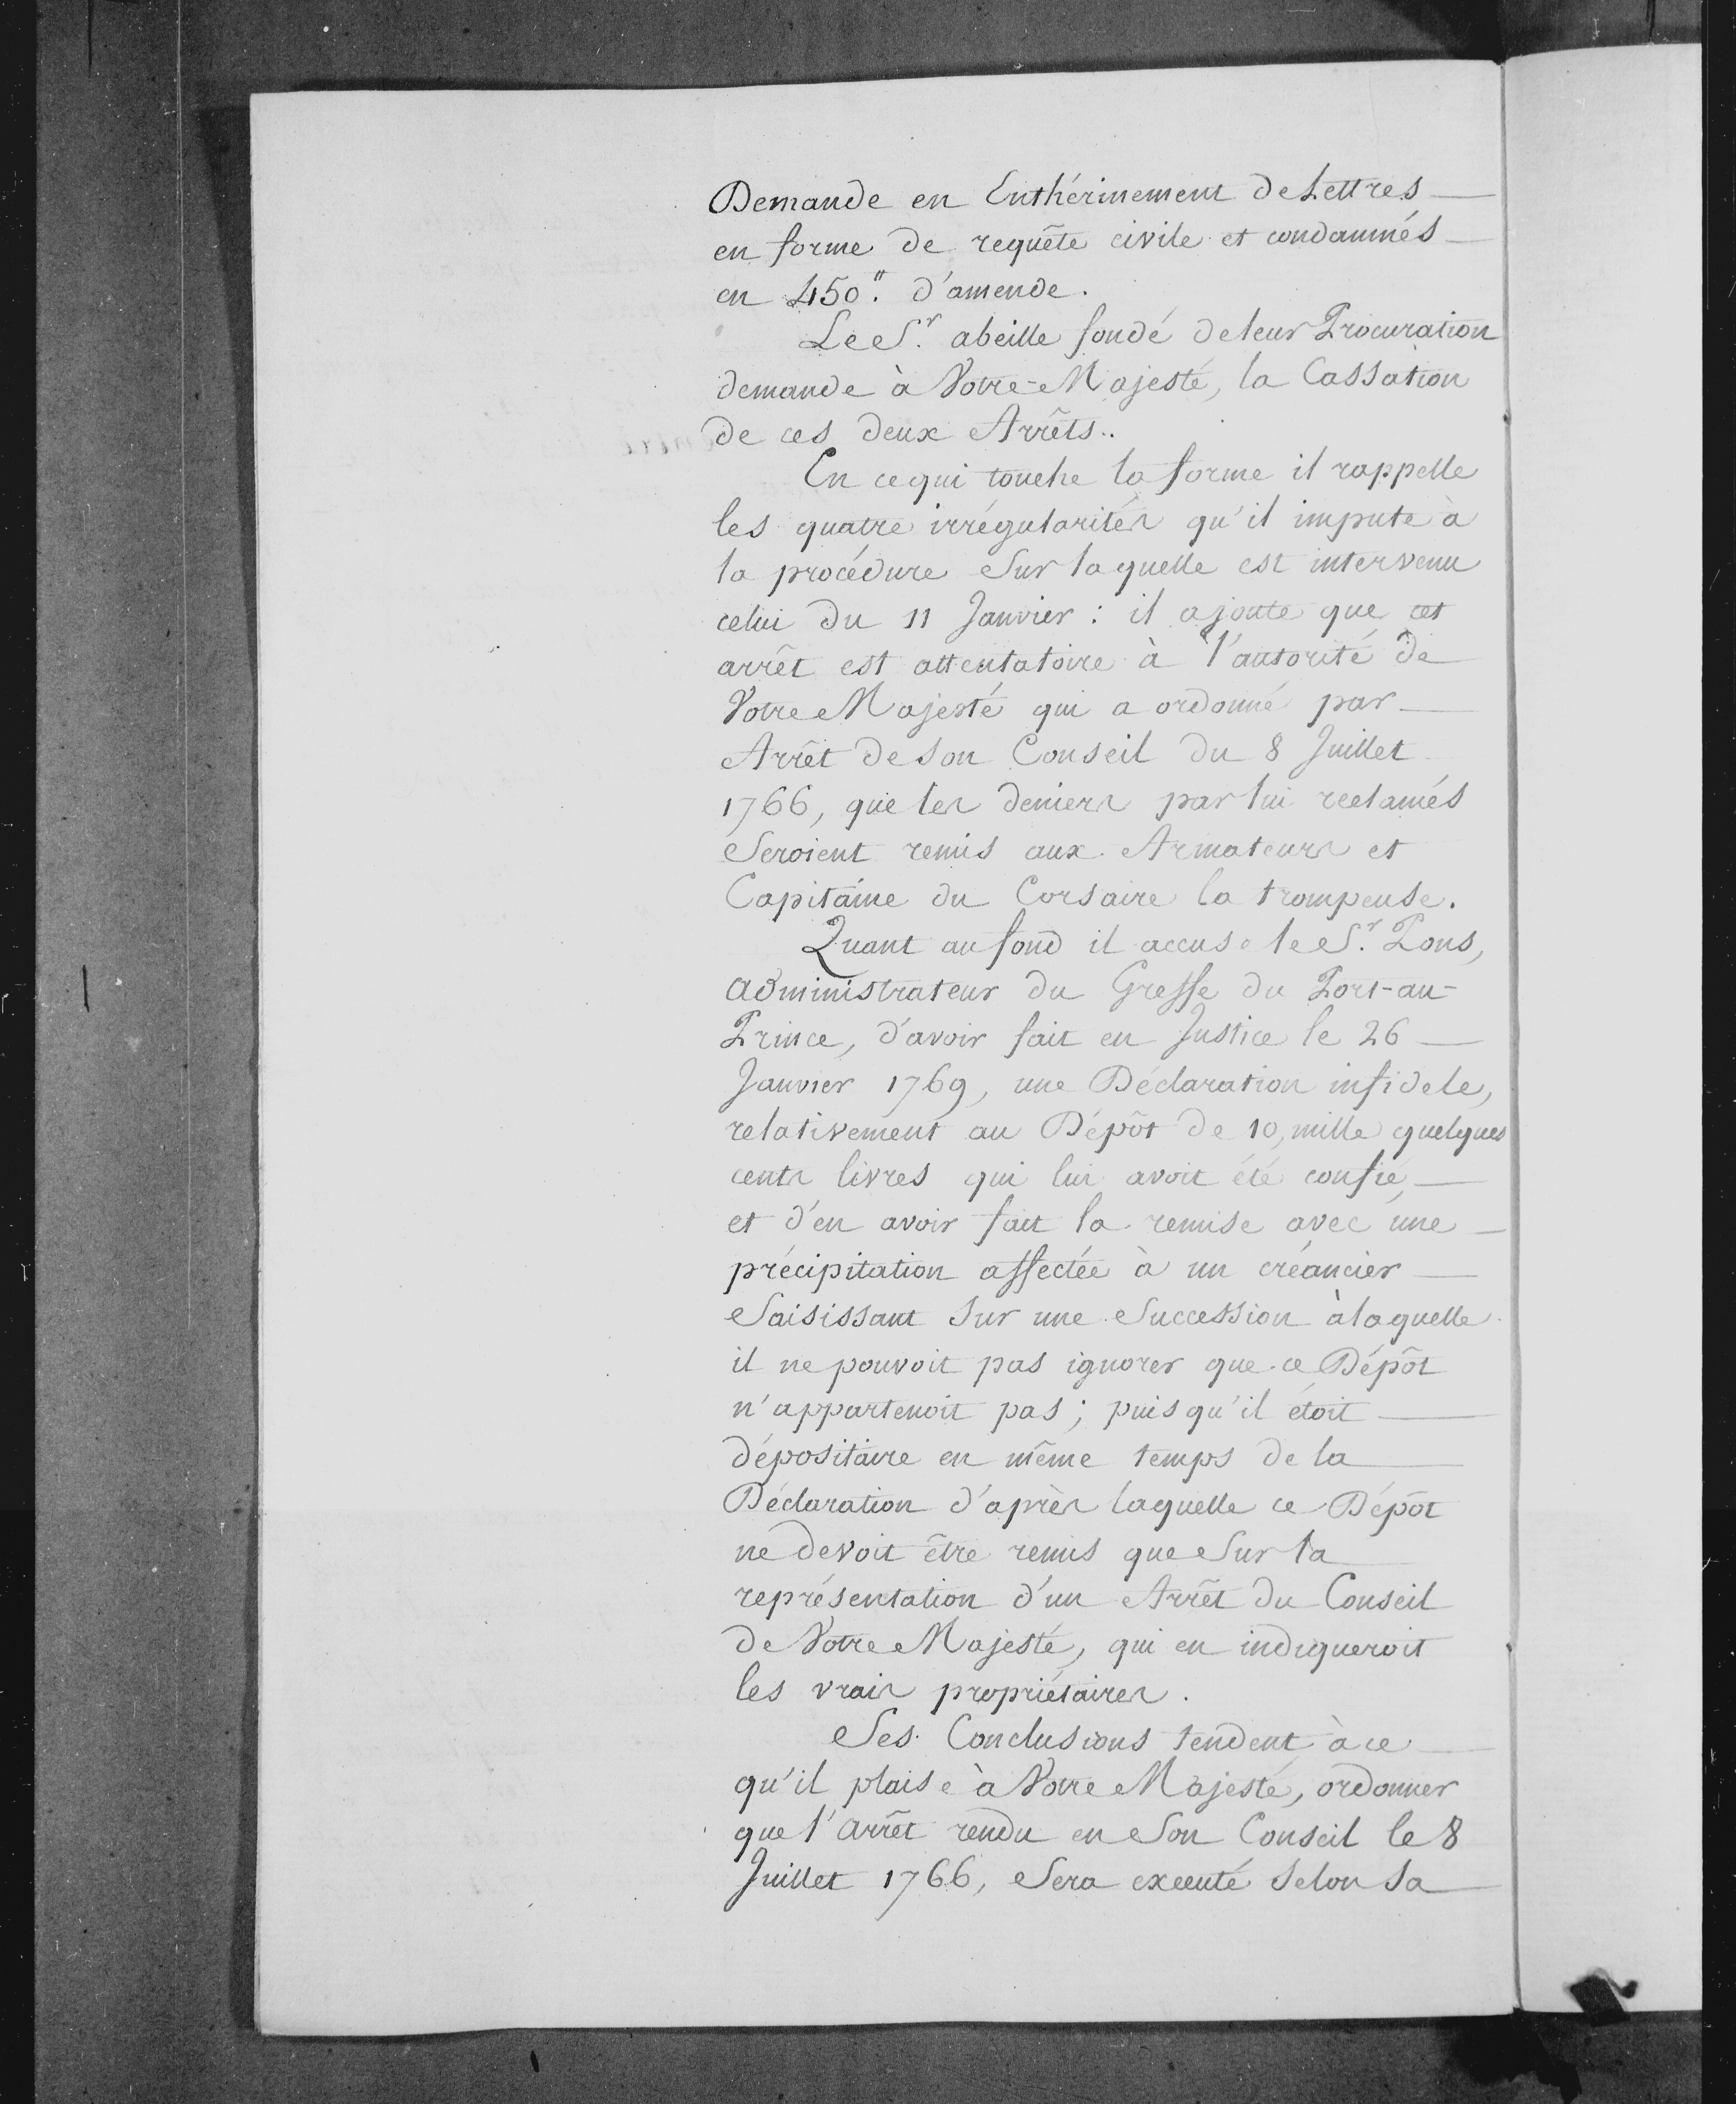 Demande en Enthérinement de Lettres
en forme de requête civile et condamnés
en 450." d'amende.
Le S.r abeille fondé de leur Procuration
demande à Votre Majesté, la Cassation
de ces deux Arrêts..
En ce qui touche la forme il rappelle
les quatre irrégularités qu'il impute à
la procédure Sur laquelle est intervenu
celui du 11 Janvier : il ajoute que cet
arrêt est attentatoire à l'autorité de
Votre Majesté qui a ordonné par
Arrêt de son Conseil du 8 Juillet
1766, que les deniers par lui reclamés
Seroient remis aux Armateurs et
Capitaine du Corsaire la trompeuse.
Quant au fond il accuse le S.r Pons,
administrateur du Greffe du Port-au-
Prince, d'avoir fait en Justice le 26
Janvier 1769, une Déclaration infidele,
relativement au Dépôt de 10, mille quelques
cents livres qui lui avoit été confié,
et d'en avoir fait la remise avec une
précipitation affectée à un créancier
Saisissant sur une Succession à laquelle
il ne pouvoit pas ignorer que ce Dépôt
n'appartenoit pas ; puis qu'il étoit
dépositaire en même temps de la
Déclaration d'après laquelle ce Dépôt
ne devoit être remis que Sur la
représentation d'un Arrêt du Conseil
de Votre Majesté, qui en indiqueroit
les vrais propriétaires.
Ses Conclusions tendent à ce
qu'il plaise à Votre Majesté, ordonner
que l'arrêt rendu en Son Conseil le 8
Juillet 1766, Sera executé selon sa